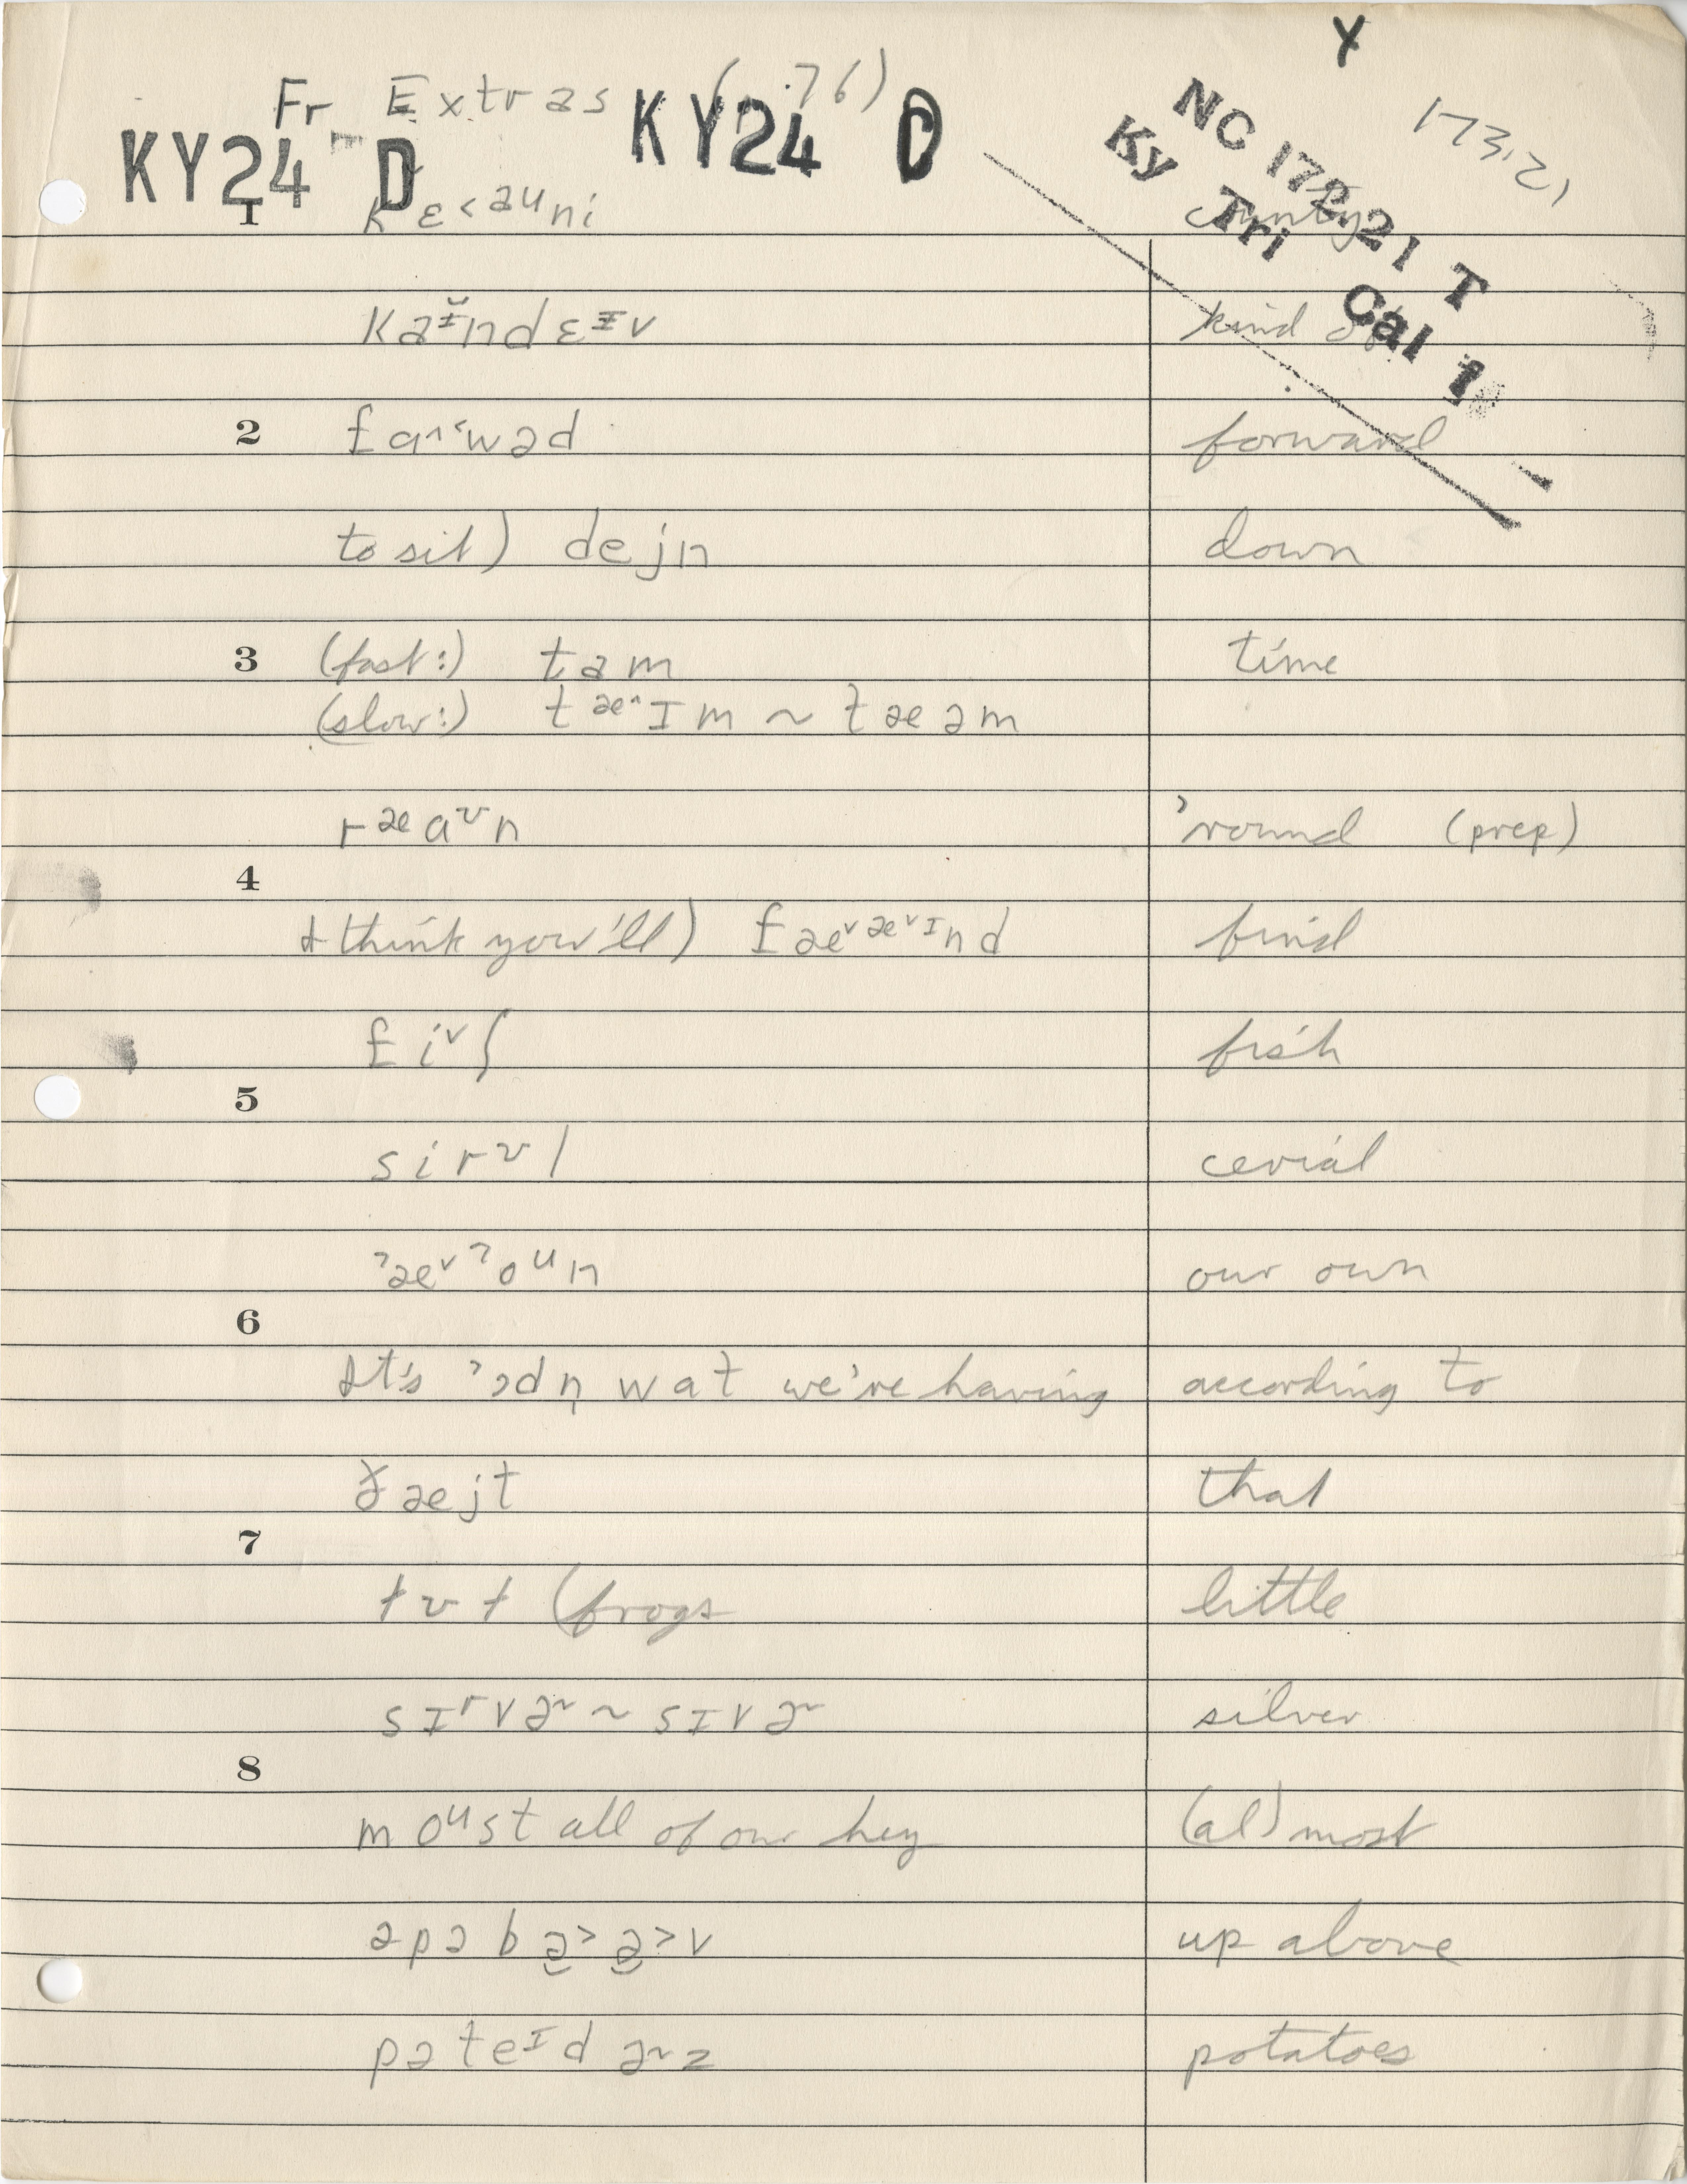 Y
Fr Extras (p.76)
KY24 D KY24 D
NC 172.21 T
Ky Tri Cal 1
173.21
1 kɛ˂aᵘni county
kaᶦ̆ndɛᶦv kind of
2 fɑ˄˂wəd forward
to sit) dejn down
3 (fast:) tam time
(slow:) tᵃᵉ˄ɪm ~ tæəm
rᵃᵉɑᶷn 'round (prep)
4
I think you'll) fæ˅ᵃᵉ˅ᶦnd find
fi˅ʃ fish
5
sirᶷl cerial
ˀæ˅ˀoᵘn our own
6
It's ˀɔdn̩ wat we're having according to
ðæjt that
7
ɫʊɫ (frogs little
sɪʳvɚ ~ sɪvɚ silver
8
moᵘst all of our hey (al)most
əpəbə̮˃ə̮˃v up above
pəteᶦdɚz potatoes